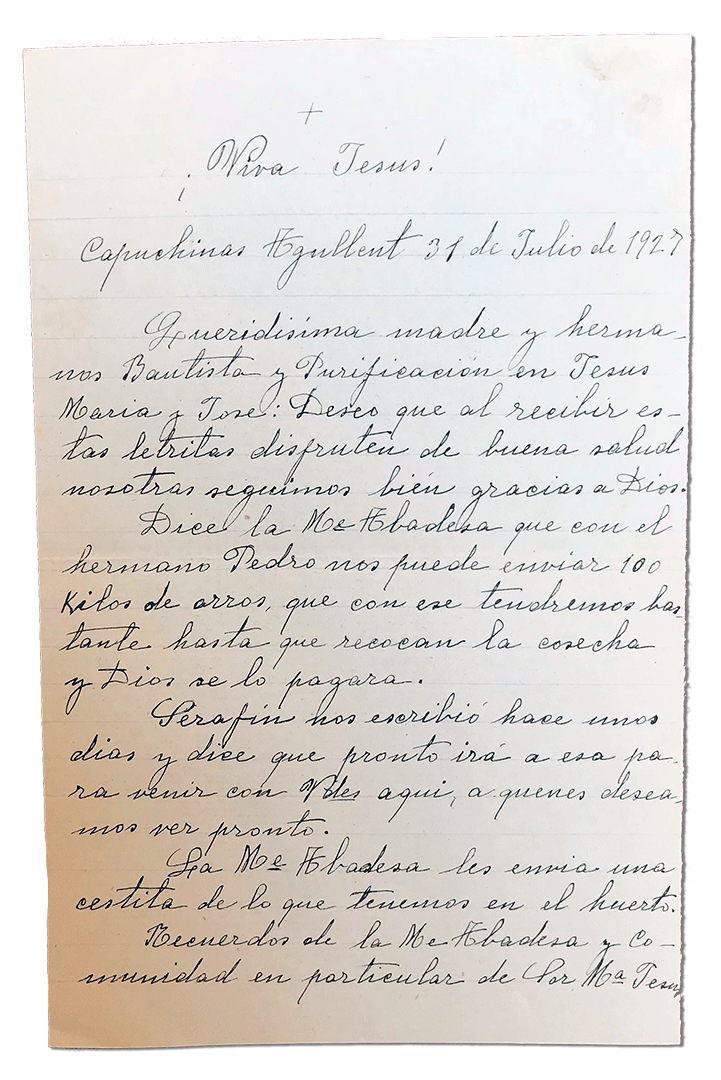 +
¡Viva Jesus!
Capuchinas Agullent 31 de Julio de 1927
Queridisima madre y herma-
nos Bautista y Purificación en Jesus
Maria y Jose: Deseo que al recibir es-
tas letritas disfruten de buena salud
nosotras seguimos bién gracias a Dios.
Dice la Me Abadesa que con el
hermano Pedro nos puede enviar 100
Kilos de arros, que con ese tendremos bas-
tante hasta que recocan la cosecha
y Dios se lo pagara.
Serafin nos escribió hace unos
dias y dice que pronto irá a esa pa-
ra venir con Vdes aqui, a quenes desea-
mos ver pronto.
La Me Abadesa les envia una
cestita de lo que tenemos en el huerto.
Recuerdos de la Me Abadesa y Co-
munidad en particular de Sor Ma Jesus